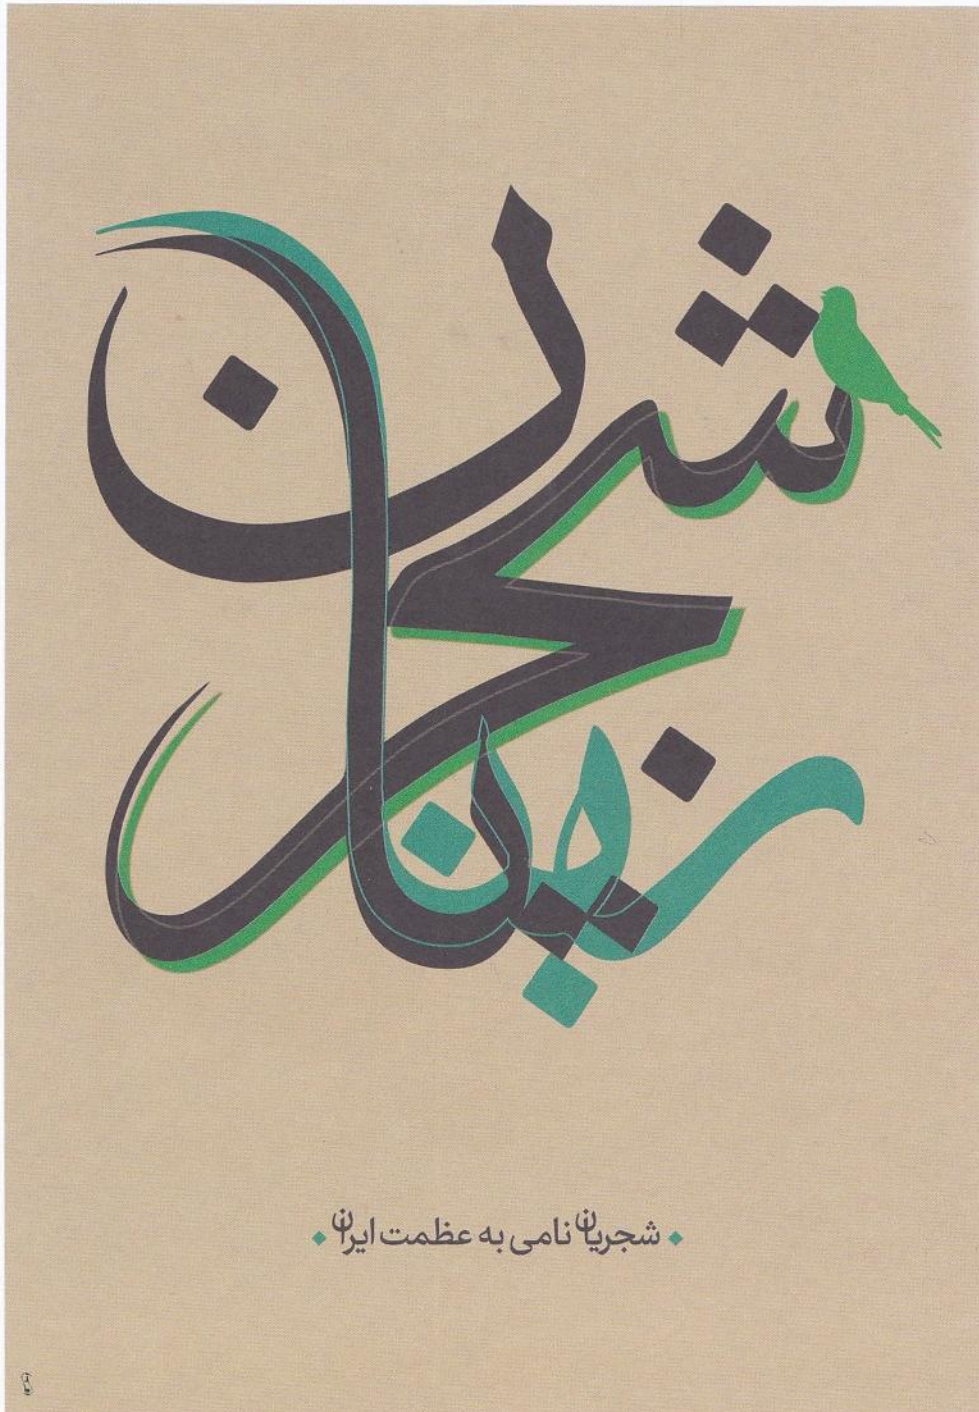 شجریان
شجریان نامی به عظمت ایران